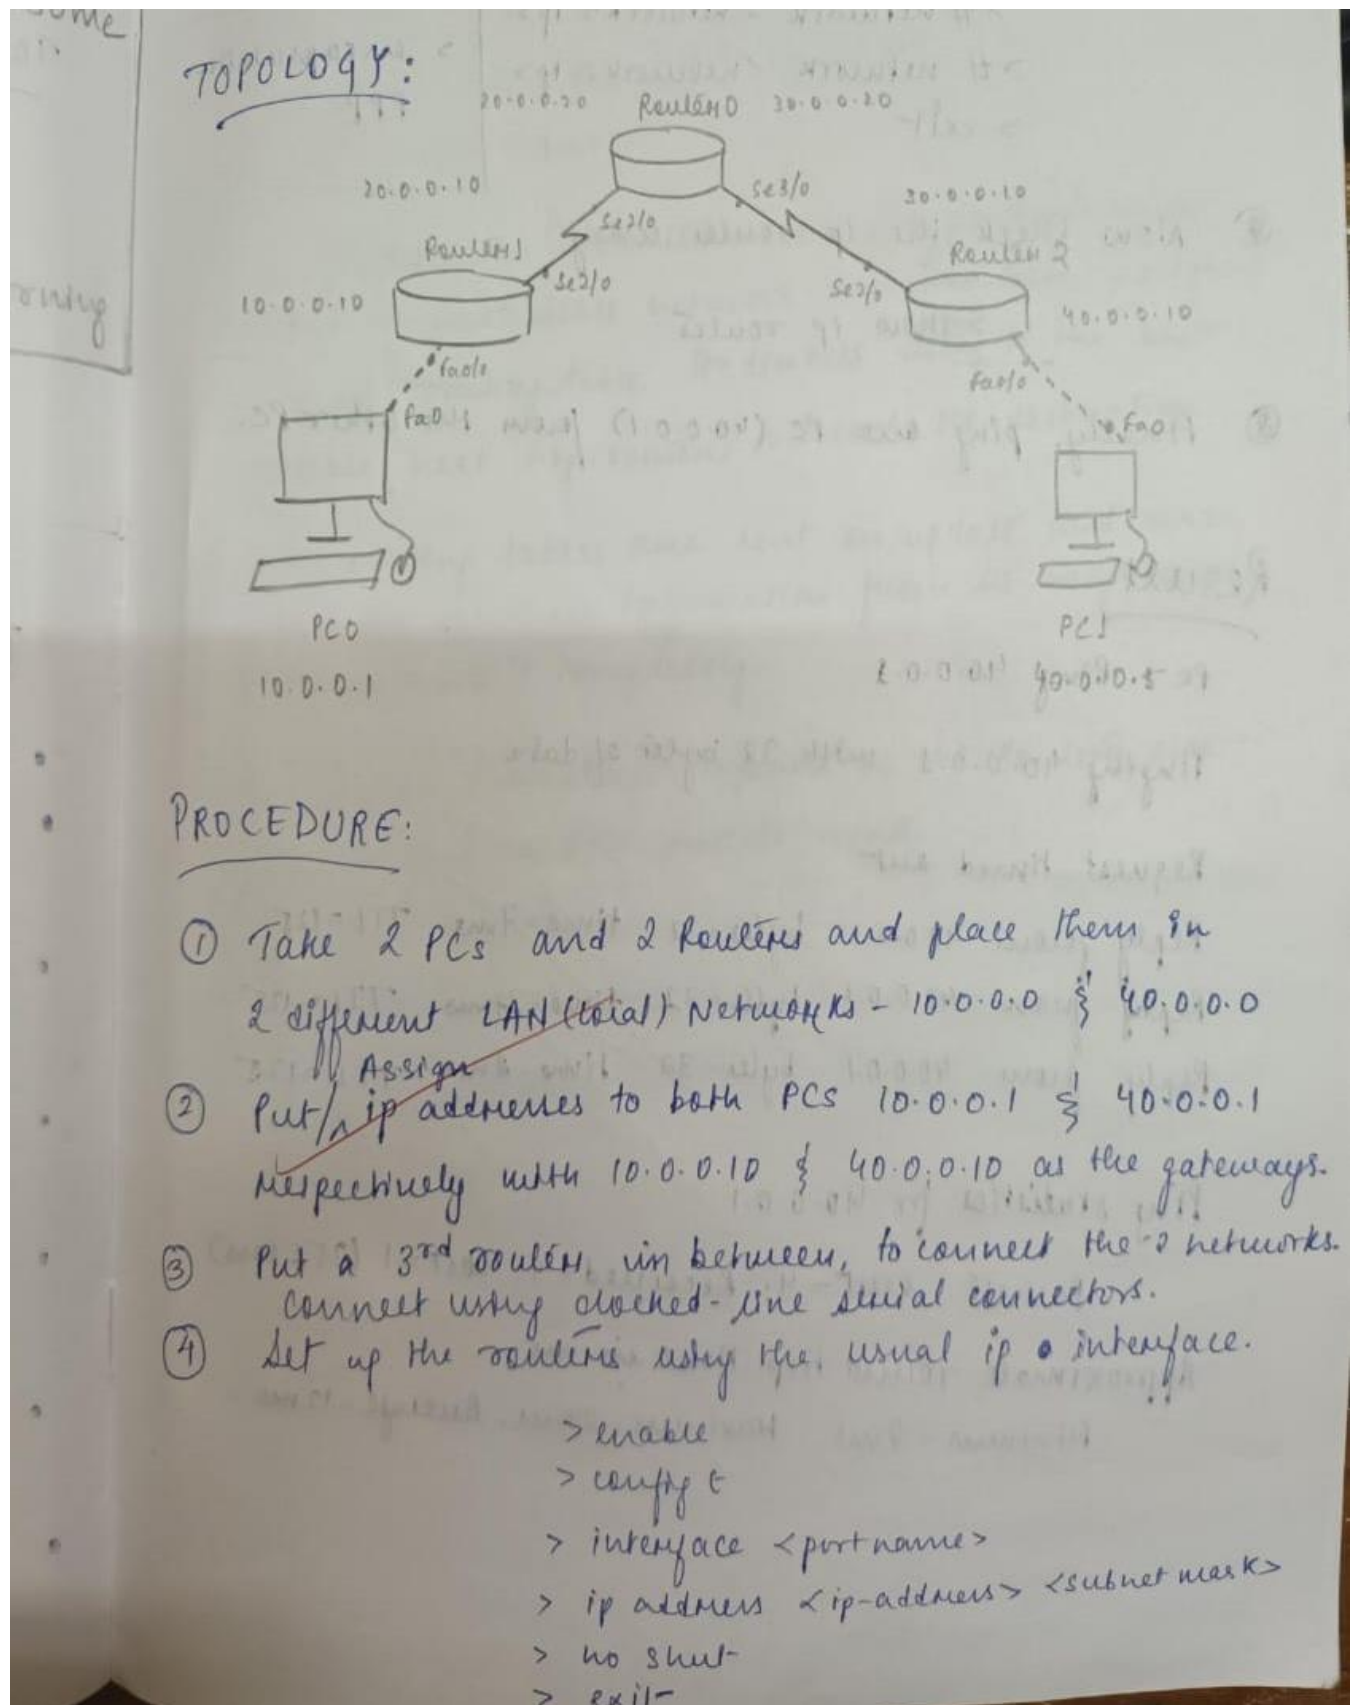 ome
TOPOLOGY:
20.0.0.20 Router0 30.0.0.20
20.0.0.10 Se3/0 30.0.0.10
Se2/0
Router1 Router 2
Se2/0 Se2/0
10.0.0.10 40.0.0.10
fa0/0 fa0/0
fa0 fa0
PC0 PC1
10.0.0.1 40.0.0.1
PROCEDURE:
① Take 2 PCs and 2 Routers and place them in
2 different LAN (local) Networks - 10.0.0.0 & 40.0.0.0
Assign
② Put/^ ip addresses to both PCs 10.0.0.1 & 40.0.0.1
respectively with 10.0.0.10 & 40.0.0.10 as the gateways.
③ Put a 3rd router, in between, to connect the 2 networks.
connect using clocked-line serial connectors.
④ Set up the routers using the usual ip interface.
> enable
> config t
> interface <portname>
> ip address <ip-address> <subnet mask>
> no shut
> exit